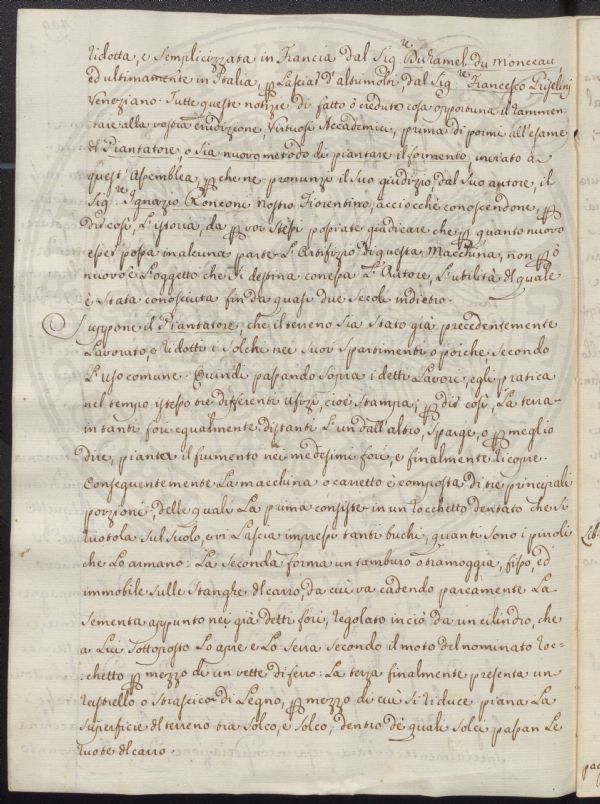 ridotta, e semplicizzata in Francia dal Sig.re Du Hamel du Monceau
ed ultimamente in Italia, p lasciar d'altri molti, dal Sig.re Francesco Griselini
Veneziano. Tutte queste notizie di fatto ò creduto cosa opportuna il rammen-
tare alla vostra erudizione, Virtuosi Accademici, prima di pormi all'esame
del Piantatore, o sia nuovo metodo di piantare il formento, inviato a
quest'Assemblea, p che ne pronunzi il suo giudizio, dal suo autore, il
Sig.re Ignazio Ronconi nostro Fiorentino, acciocchè conoscendone, p
dir così, l'istoria, da p voi stessi possiate giudicare che p quanto nuovo
esser possa in alcuna parte l'Artifizio di questa Macchina, non p ò
nuovo è l'oggetto che si destina con essa l'Autore, l'utilità del quale
è stata conosciuta fin da quasi due secoli indietro.
Suppone il Piantatore, che il terreno sia stato già precedentemente
lavorato, e ridotti i solchi nei suoi spartimenti o porche, secondo
l'uso comune. Quindi passando sopra i detti lavori, egli pratica
nel tempo istesso tre differenti ufizi, cioè stampa, p dir così, la terra
in tanti fori egualmente distanti l'un dall'altro, sparge, o p meglio
dire, pianta il frumento nei medesimi fori, e finalmente ricopre.
Conseguentemente la macchina o carretto è composta di tre principali
porzioni, delle quali la prima consiste in un rocchetto dentato che si
ruotola sul suolo, e vi lascia impressi tanti buchi, quanti sono i piuoli
che lo armano: La seconda forma un tamburo o tramoggia, fisso, ed
immobile sulle stanghe del carro, da cui va cadendo parcamente la
sementa appunto nei già detti fori, regolato in ciò da un cilindro, che
a lui sottoposto lo apre e lo serra secondo il moto del nominato roc-
:chetto p mezzo di un vette di ferro: La terza finalmente presenta un
rastrello o strascico di legno, p mezzo di cui si riduce piana la
superficie del terreno tra solco, e solco, dentro de' quali solchi passan le
ruote del carro.